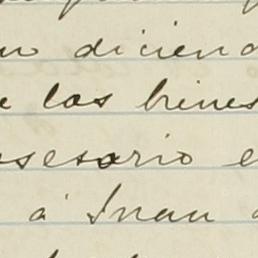 diciend
e los bienes
sesorio e
á Juan